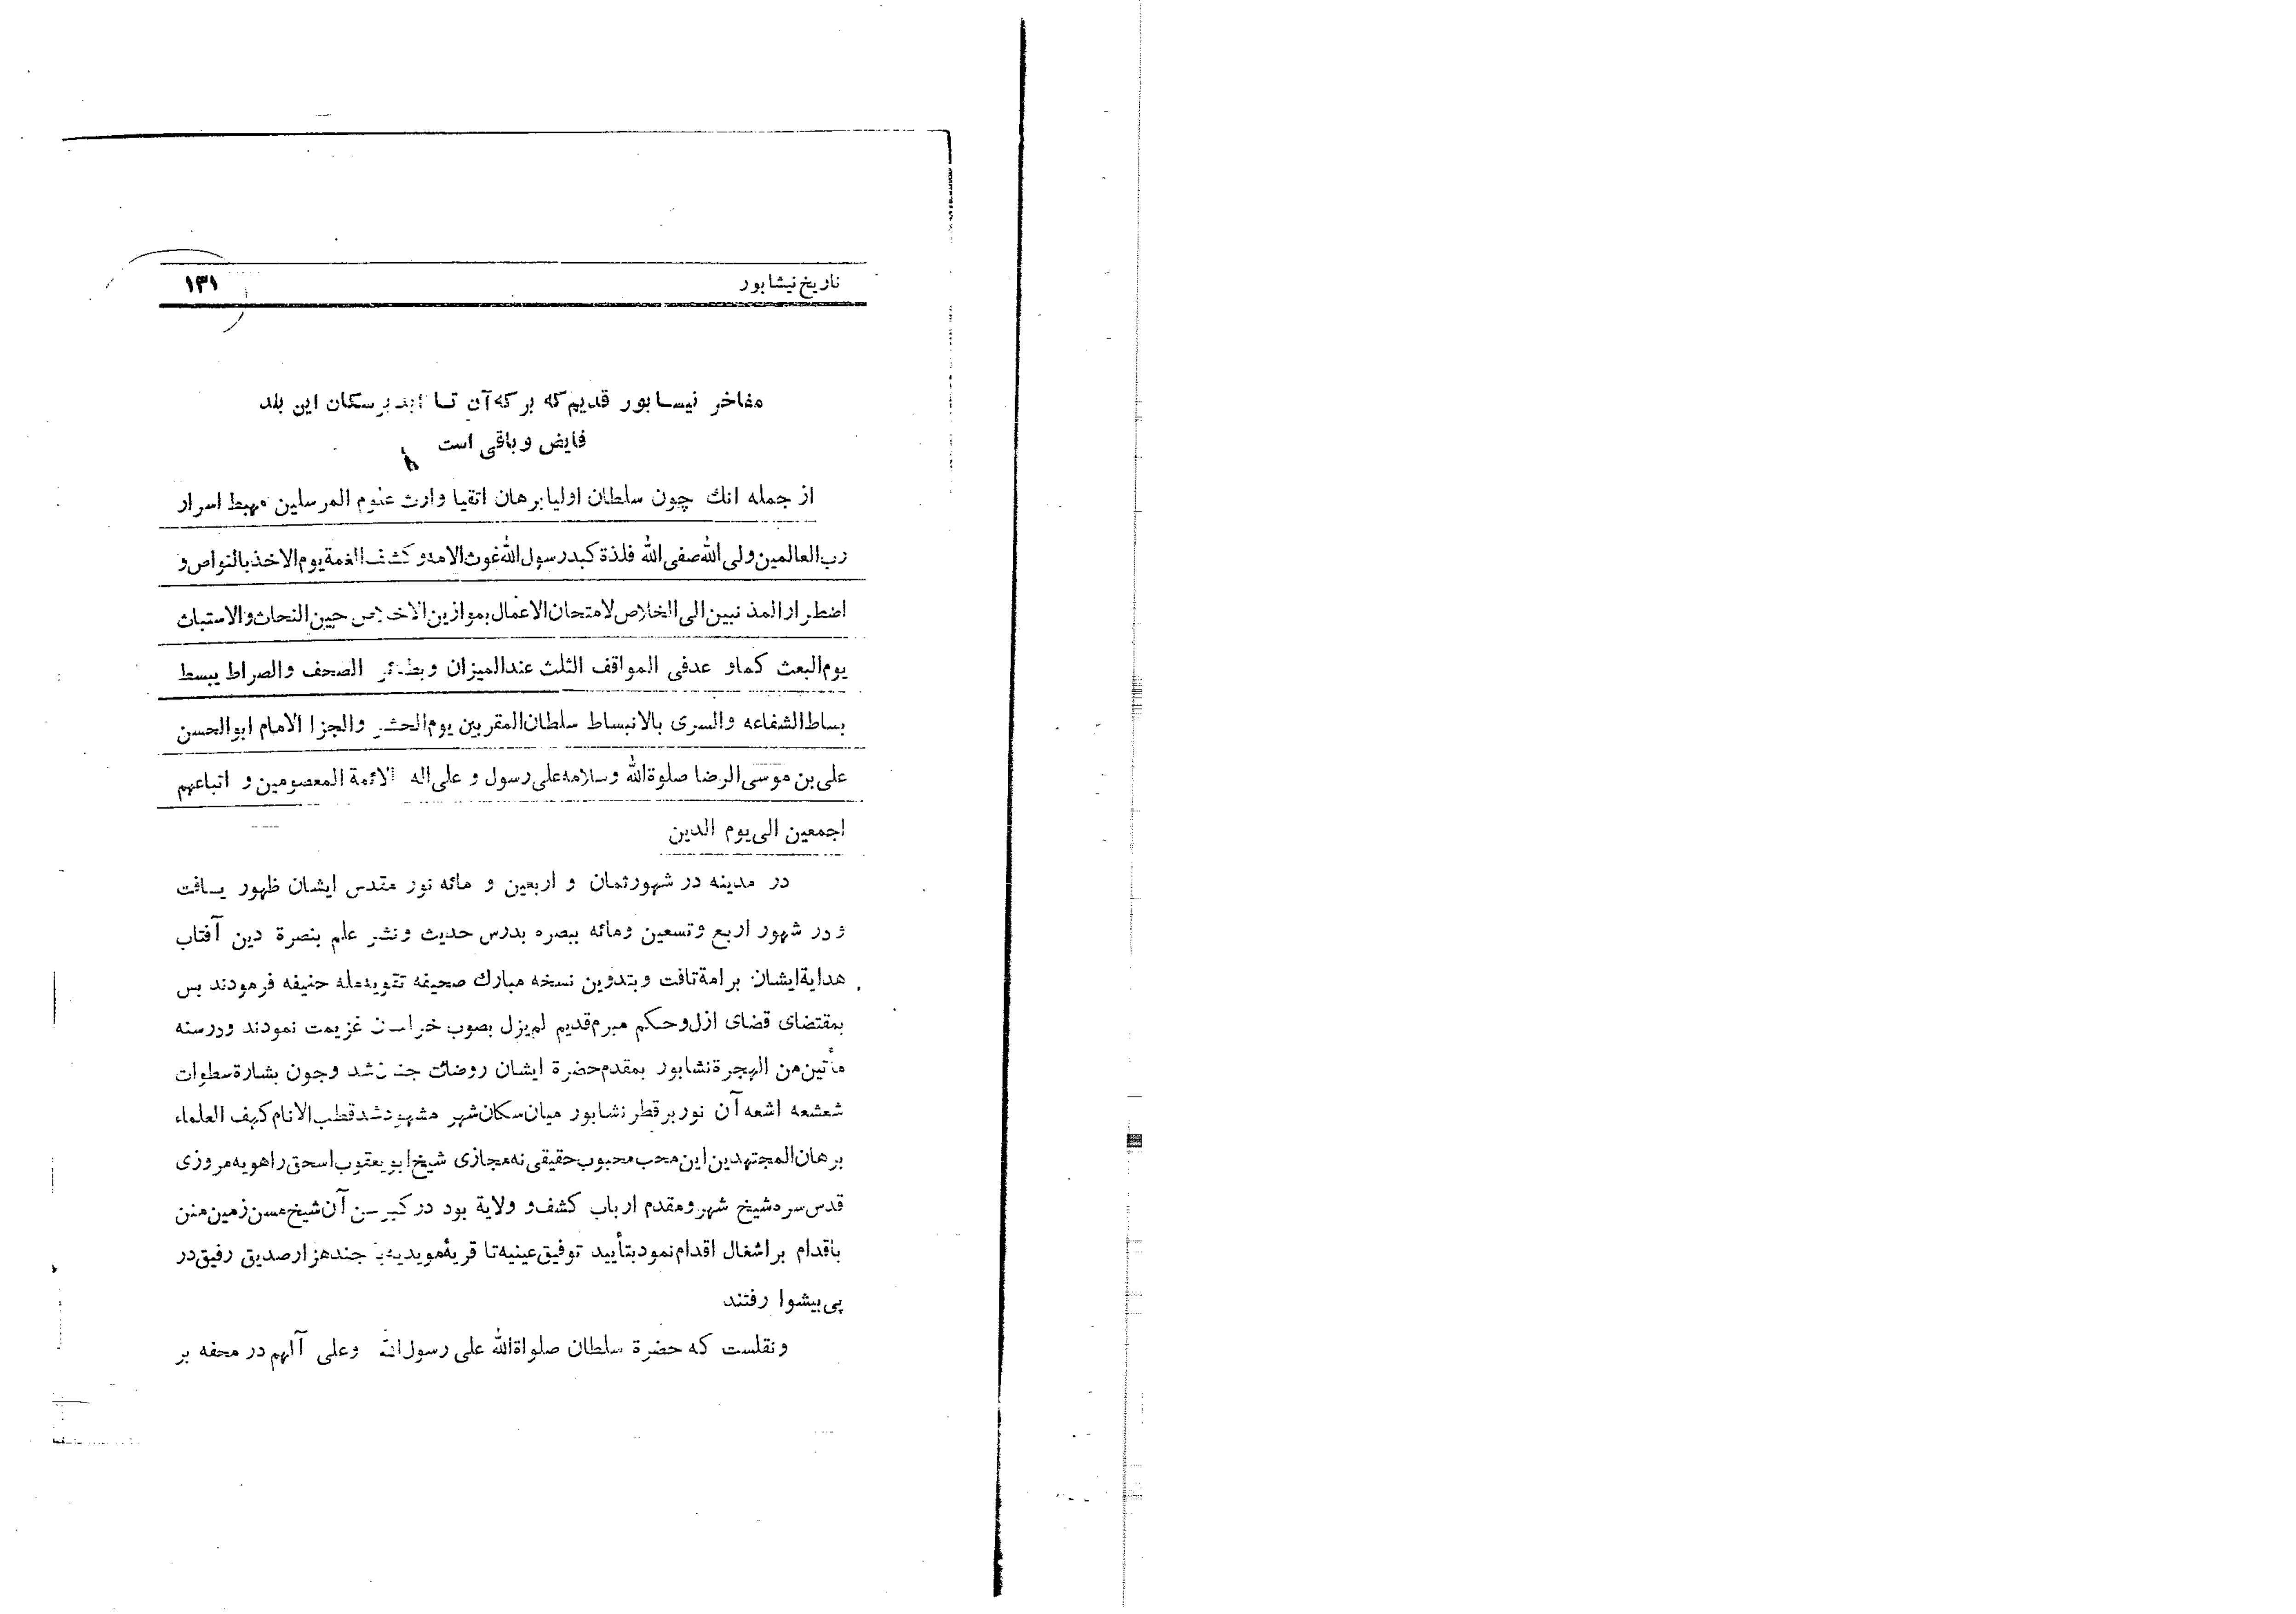 تاریخ نیشابور
۱۳۱
مفاخر نیسابور قدیم که برکه آن تا ابد بر سکان این بلد
فایض و باقی است
از جمله انك چون سلطان اولیا برهان اتقیا وارث علوم المرسلین مهبط اسرار
رب العالمین ولی الله صفی الله فلذة کبد رسول الله غوث الامه و کشف الغمة یوم الاخذ بالنواص و
اضطرار المذنبین الی الخلاص لامتحان الاعمال بموازین الاخلاص حین النحاث والاستباث
یوم البعث کماو عدفی المواقف الثلث عند المیزان و بطائر الصحف والصراط یبسط
بساط الشفاعه والسری بالانبساط سلطان المقربین یوم الحشر والجزا الامام ابوالحسن
علی بن موسی الرضا صلوة الله وسلامه علی رسول و علی اله الائمة المعصومین و اتباعهم
اجمعین الی یوم الدین
در مدینه در شهور ثمان و اربعین و مائه نور مقدس ایشان ظهور یافت
و در شهور اربع وتسعین ومائه ببصره بدرس حدیث ونشر علم بنصرة دین آفتاب
هدایة ایشان بر امة تافت وبتدوین نسخه مبارك صحیفه تقویه مله حنیفه فرمودند بس
بمقتضای قضای ازل وحکم مبرم قدیم لم یزل بصوب خراسان عزیمت نمودند ودرسنه
مأتین من الهجرة نشابور بمقدم حضرة ایشان روضات جنان شد وجون بشارة سطوات
شعشعه اشعه آن نور برقطر نشابور میان سکان شهر مشهود شد قطب الانام کهف العلماء
برهان المجتهدین این محب محبوب حقیقی نه مجازی شیخ ابو یعقوب اسحق راهویه مروزی
قدس سره شیخ شهر ومقدم ارباب کشف و ولایة بود در کبر سن آن شیخ مسن زمین منن
باقدام بر اشغال اقدام نمود بتأیید توفیق عینیه تا قریهٔ مویدیه با جند هزار صدیق رفیق در
پی بیشوا رفتند
ونقلست که حضرة سلطان صلواة الله علی رسول الله وعلی آلهم در محفه بر